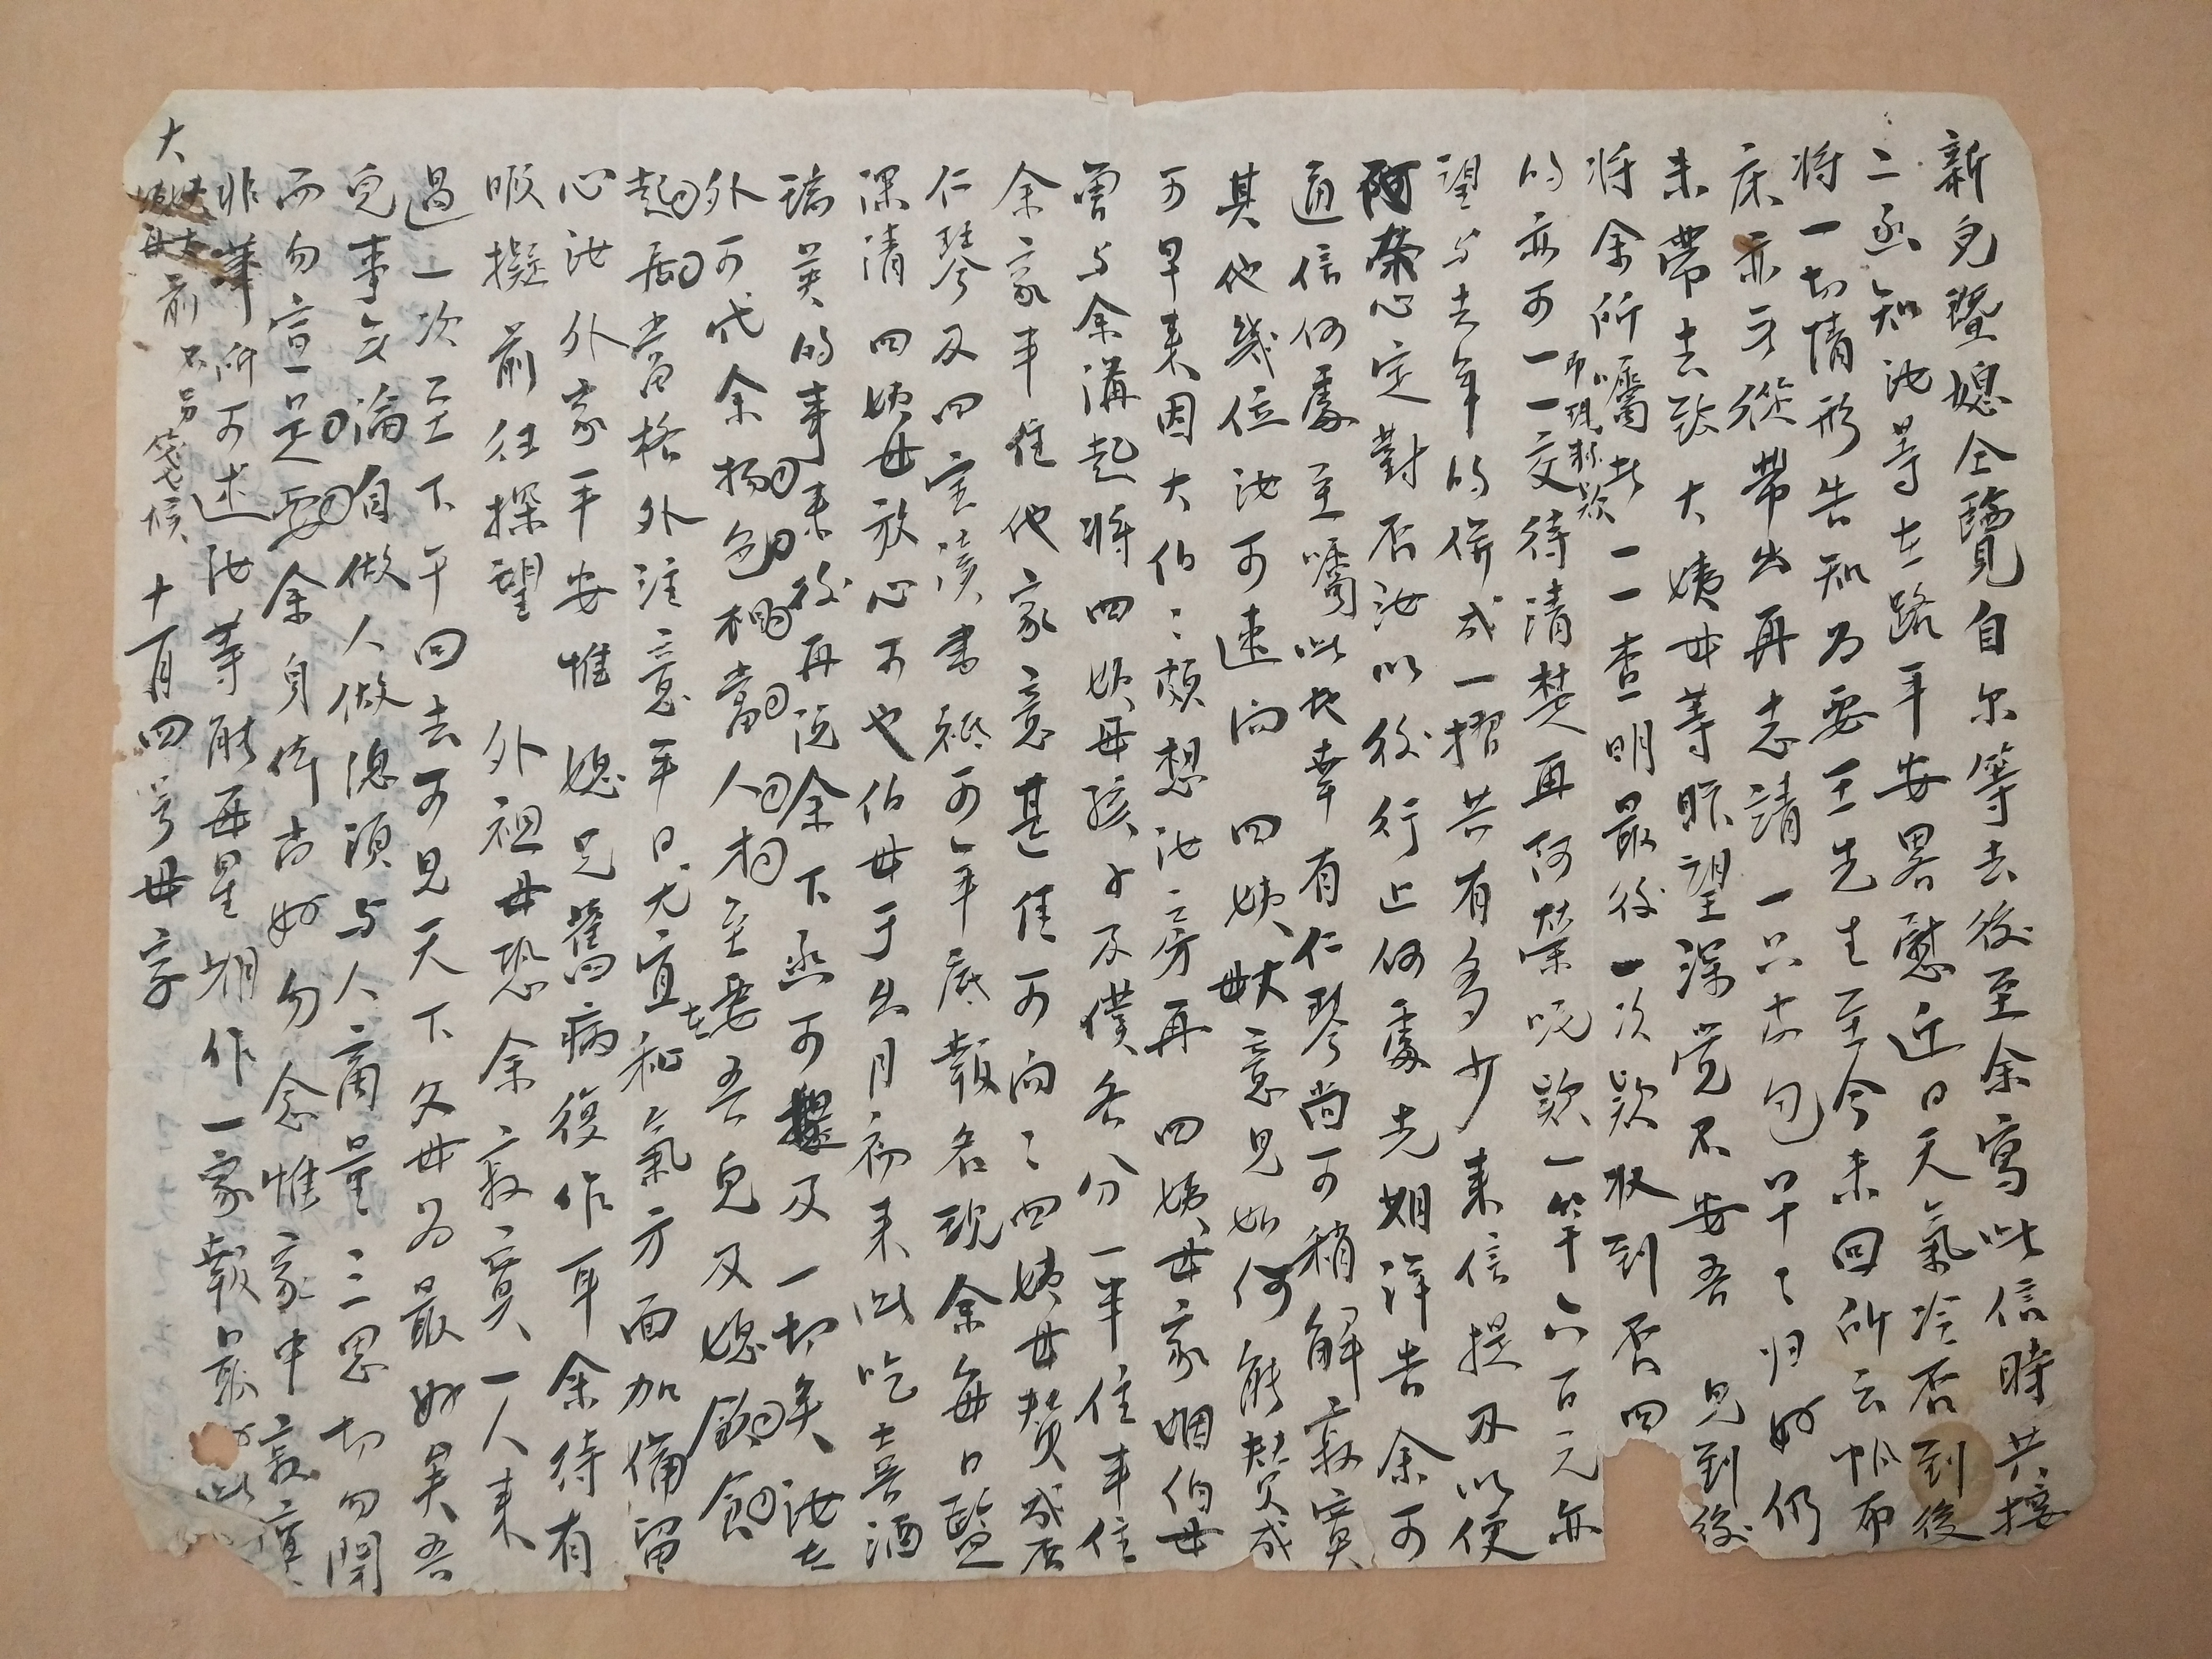 新兒暨媳仝覽自尔等去後至余寫此信時共接
二函知汝等在路平安畧慰近日天氣冷否到後
将一切情形告知为要王先生至今未回所云帆布
床亦未從帶出再者請一只皮包早々归好仍
未帶去致大姨母等盼望深覺不安吾兒到後
将余所囑 一一查明最後一次款收到否四
的亦可一一交待清楚再阿榮呢款一筆六百元亦
望与去年的併成一摺共有多少來信提及以便
阿榮心定對否汝以後行止何處先期詳告余可
通信何處至囑此也幸有仁琴尚可稍解寂寞
其他幾位汝可速向四姨母大意見如何能贊成
可早来因大伯々頗想汝二房再四姨母家姻伯母
曾与余講起将四姨母孩子及僕各分一半住半住
余家半住他家意甚佳可向々四姨母贊成否
仁琴及四宝讀書祗可年底報名现余每日監
深清四姨母放心可也伯母于出月初来此吃喜酒
瑞英的事来後再說余下函可提及一切矣汝在
外可代余物色相當人材至要吾兒及媳在飲食
起居當格外注意平日尤宜和氣方面加備留
心汝外家平安惟媳兄舊病復作耳余待有
暇擬前往探望外祖母恐余寂寞一人来
過一次至下午回去可見天下父母为最好矣吾
兒事無論自做人做總須与人商量三思切勿開
而勿宣是要余身体尚好勿念惟家中寂寞
非筆所可述汝等能每星期作一家報最好此
大姨母大姨夫前不另箋候 十一月四号母字